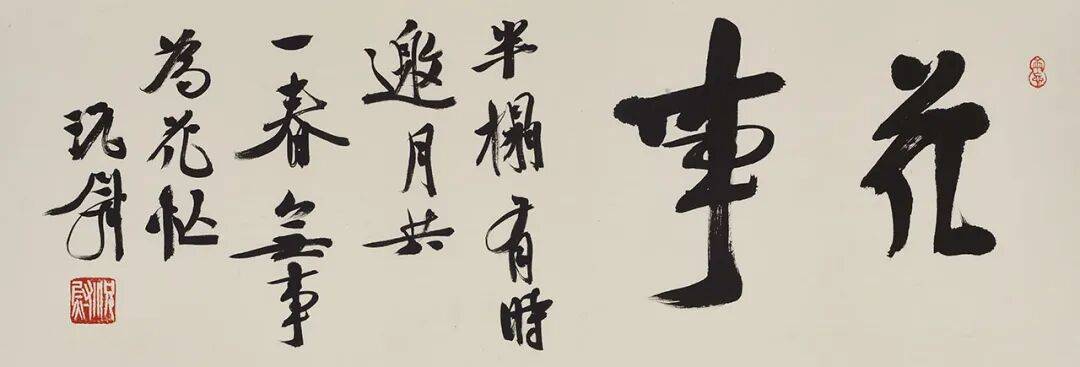 花事
半榻有時
邀月共
一春無事
為花忙
况尉